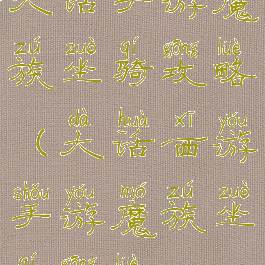 大话手游魔
zú zuò qí gōng luè
族坐骑攻略
dà huà xī yóu
(大话西游
shǒu yóu mó zú zuò
手游魔族坐
qí gōng luè